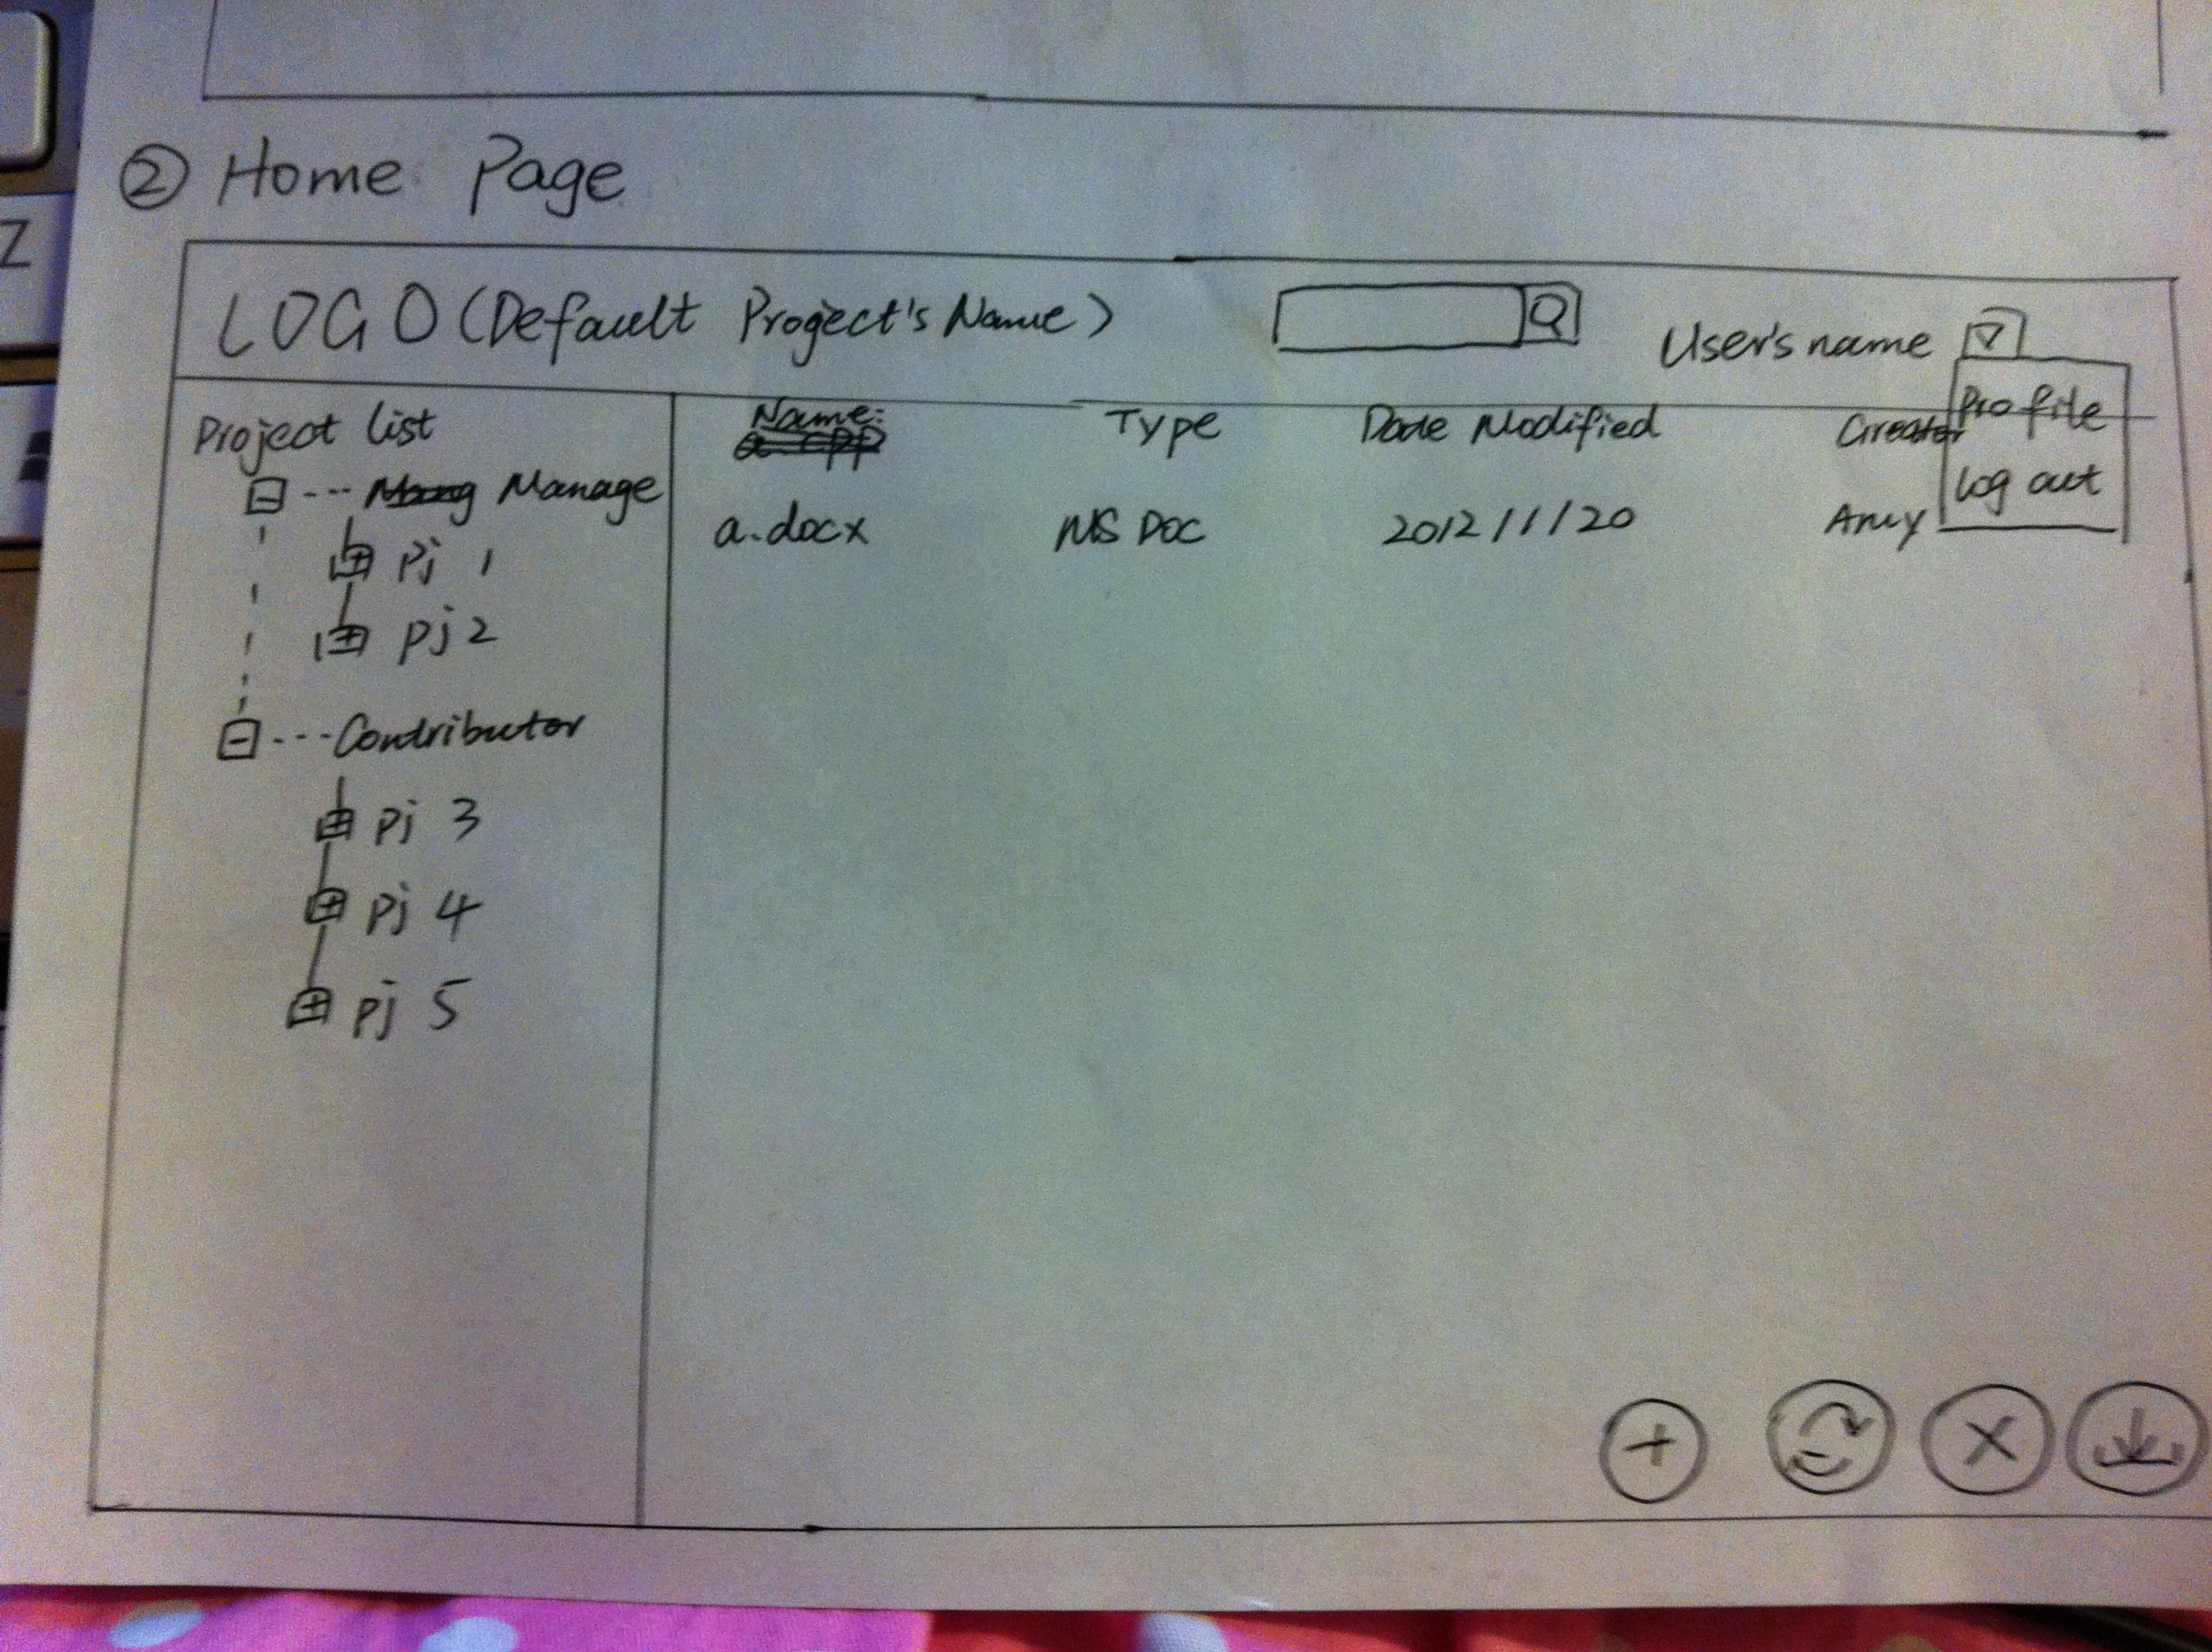 Z
② Home Page
LOGO (Default Project's Name)
User's name
Profile
Log out
Project list
Manage
Pj 1
Pj 2
Contributor
Pj 3
Pj 4
Pj 5
Name: Type Date Modified Creator
a.docx MS Doc 2012/1/20 Amy